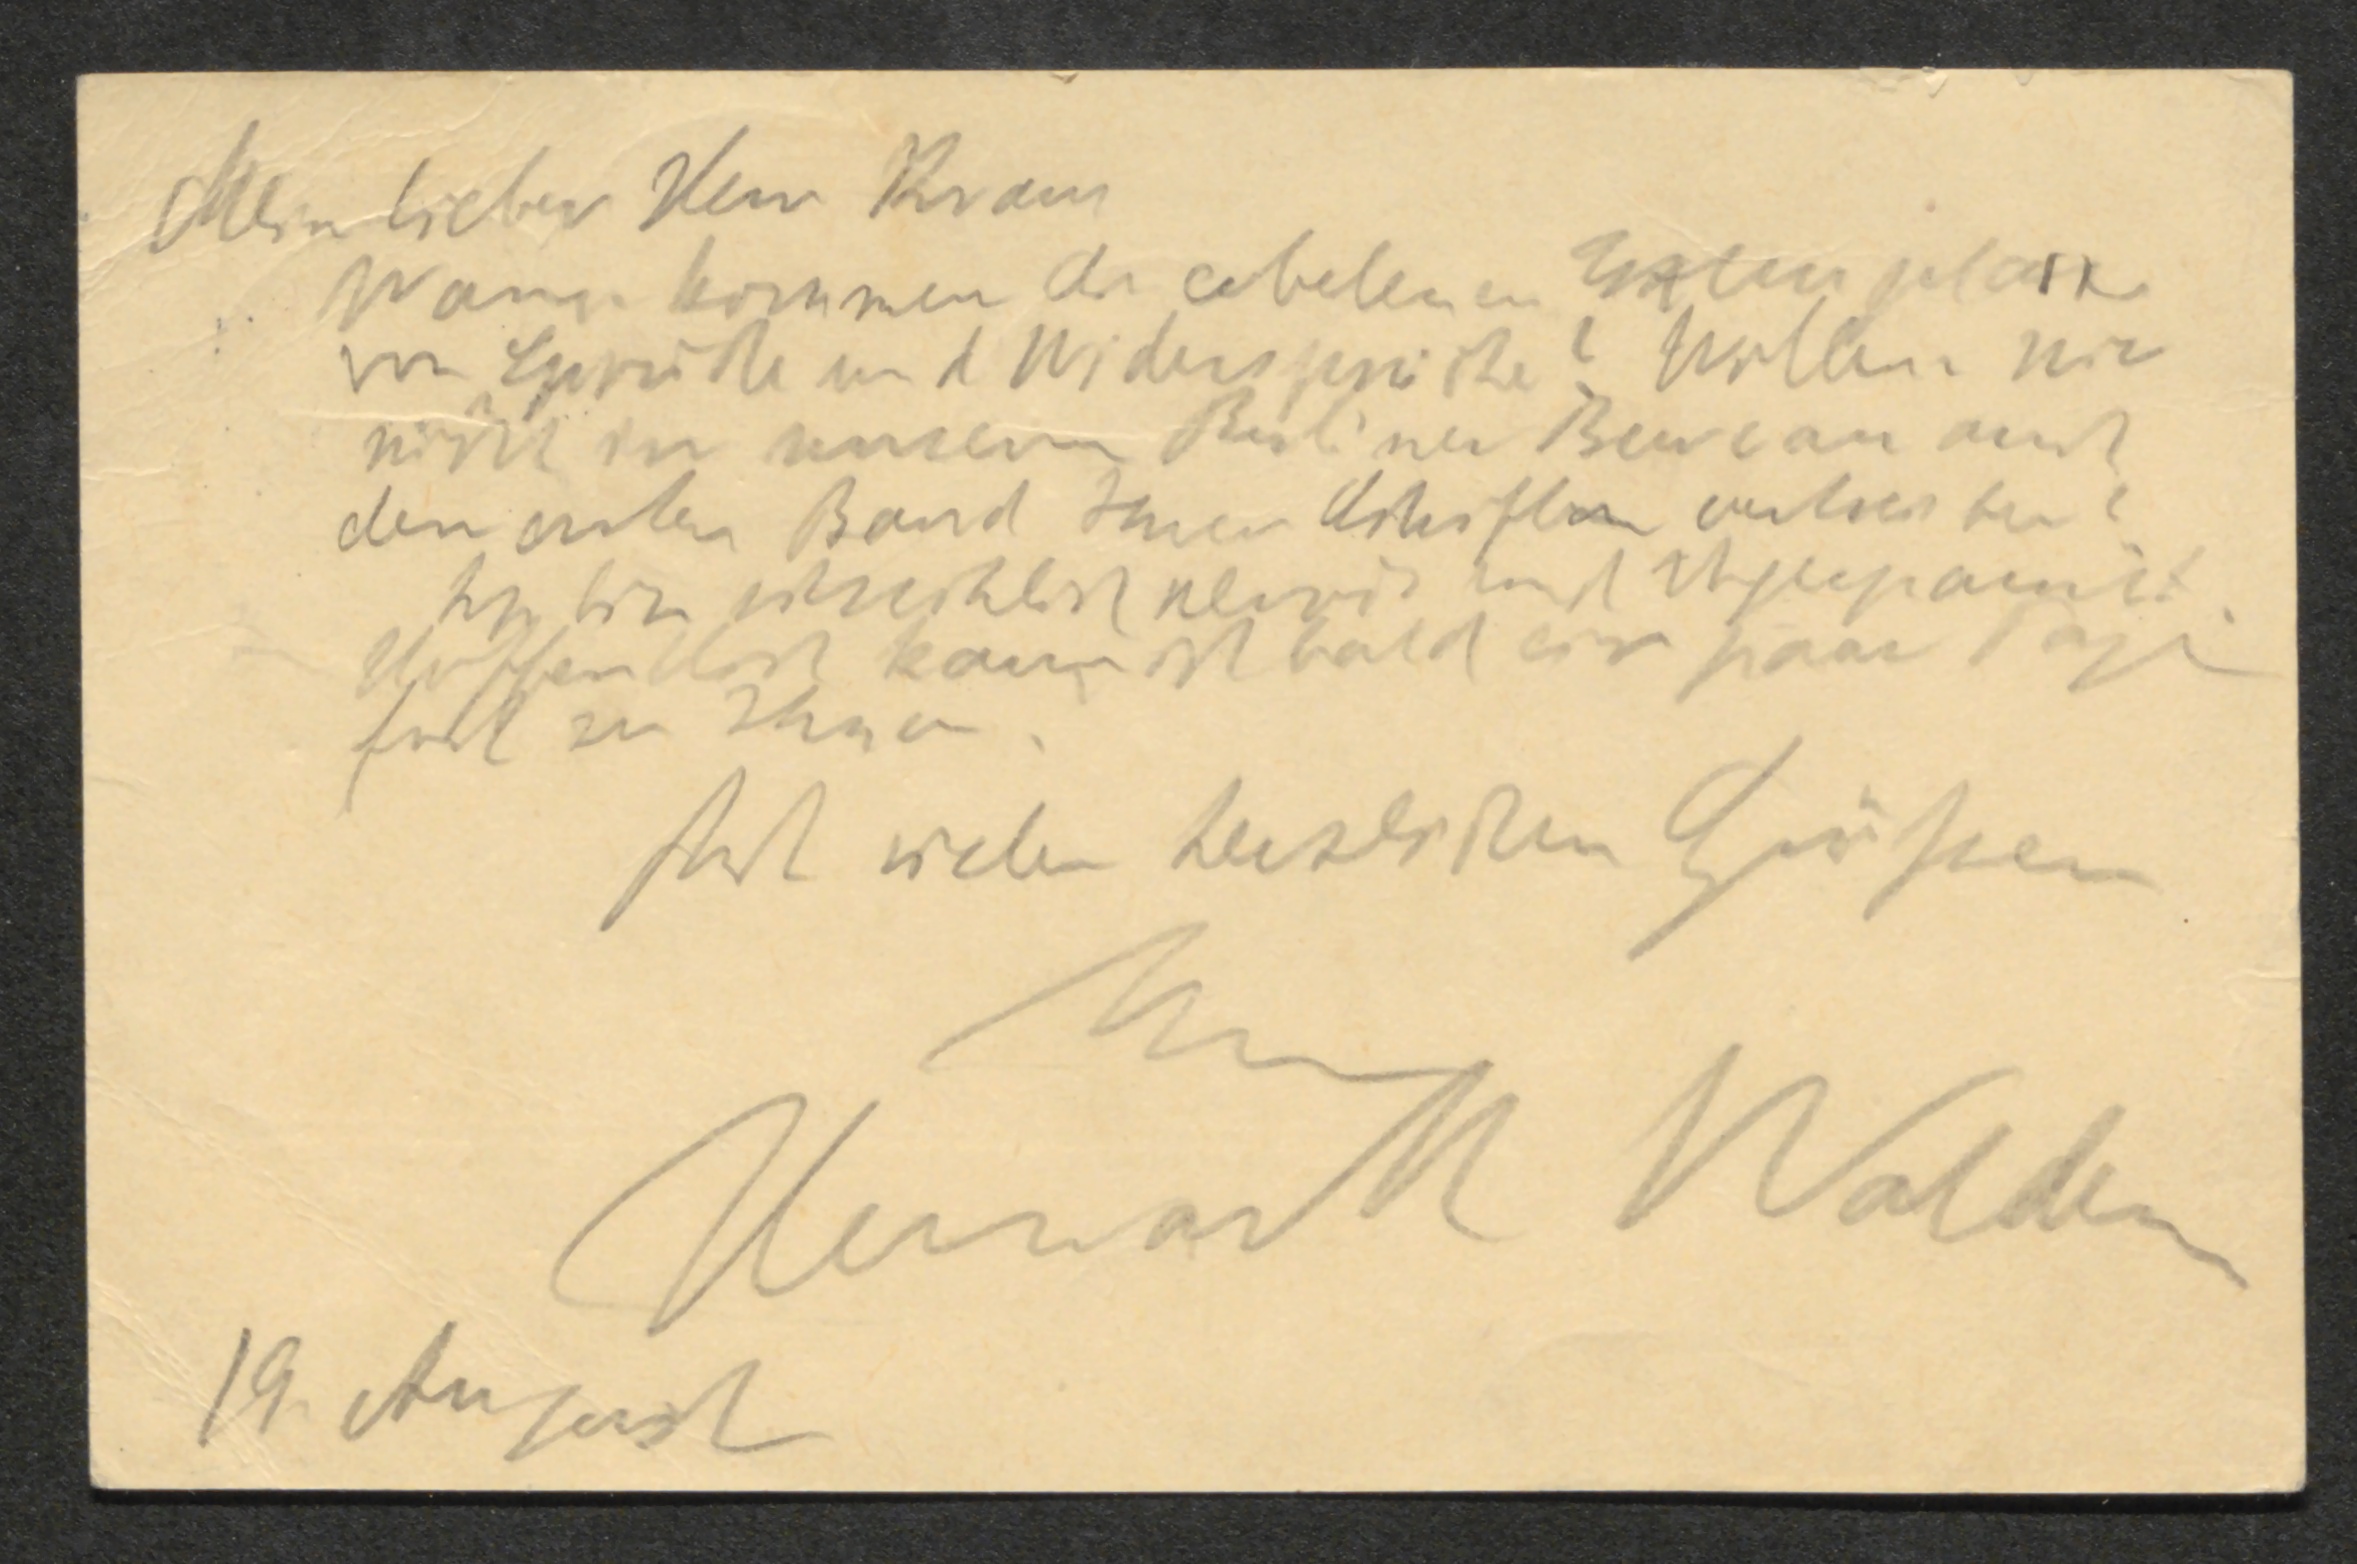 Mein lieber Herr Kraus
Wann kommen die erbetenen Exemplare
von Sprüche und Widersprüche? Wollen wir
nicht in unserem Berliner Bureau auch
den ersten Band Ihrer Schriften vertreiben?
Ich bin schrecklich nervös und abgespannt.
Hoffentlich kann ich bald ein paar Tage
fort zu Ihnen.
Mit vielen herzlichen Grüßen
Ihr
Herwarth Walden
19. August